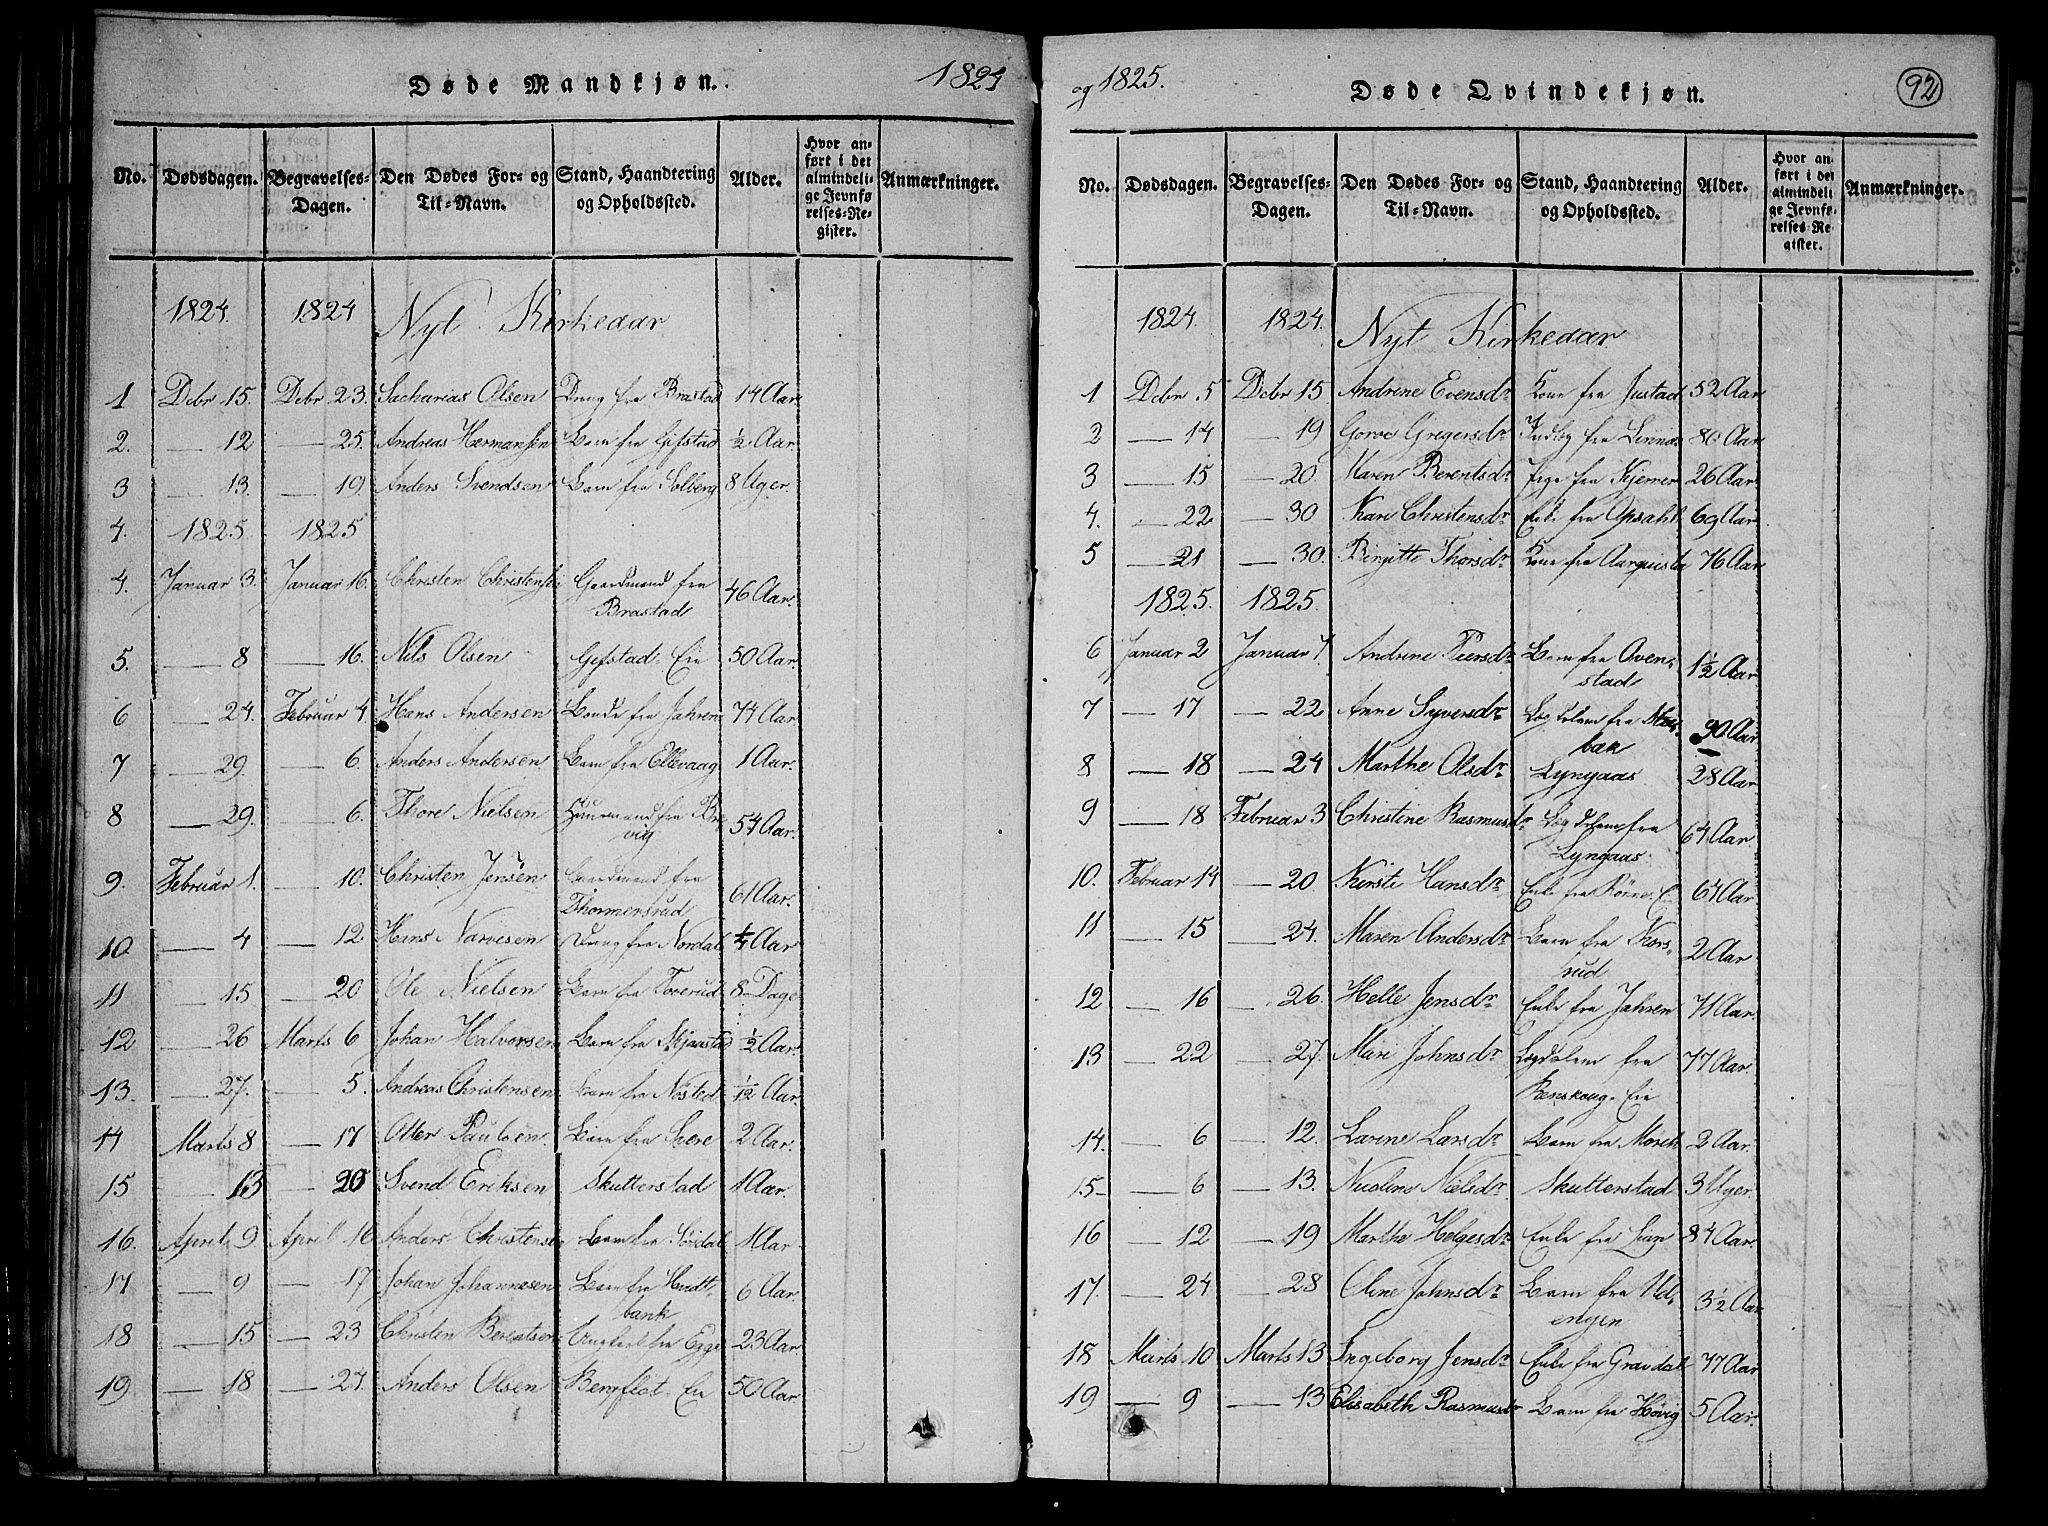 Døde Mandkjøn. 1824
No. Dødsdagen. Begravelses-Dagen. Den Dødes For- og Til-Navn. Stand, Haandtering og Opholdssted. Alder. Hvor anført i det almindelige Jevnførelses-Register. Anmærkninger.
1824. 1824 Nyt Kirkeaar
1 Dcbr 15. Dcbr 23. Sacharias Olsen Dreng fra Brastad 14 Aar
2. — 12 — 25. Andreas Hermansen Barn fra Gifstad ½ Aar.
3 — 13. — 19. Anders Svendsen Barn fra Solberg 8 Uger.
4. 1825 1825
4. Januar 3. Januar 16. Christen Christensen Gaardmand fra
Brastad 46 Aar.
5. — 8 — 16. Nils Olsen Gifstad Eie 50 Aar.
6 — 24. Februar 4 Hans Andersen Bonde fra Jahren 74 Aar.
7 — 29. — 6. Anders Andersen Barn fra Ellevaag 1 Aar.
8 — 29. — 6. Thore Nielsen Huusmand fra
vig 54 Aar.
9. Februar 1. — 10. Christen Jensen Gaardmand fra
Thormersrud 61 Aar.
10 — 4 — 12 Hans Narvesen Dreng fra Nordal Aar
11 — 15 — 20 Ole Nielsen Barn fra Toverud 8 Dage
12 — 26 Marts 6 Johan Halvorsen Barn fra Skjaastad ½ Aar.
13. — 27. — 5. Andreas Christensen Barn fra Nøsted 1/12 Aar.
14 Marts 8 — 17 Otter Paulsen. Barn fra 2 Aar.
15 — 13 — 20 Svend Eriksen Skutterstad 1 Aar.
16. April 9 April 16 Anders Christensen Barn fra 1 Aar
17 — 9 — 17 Johan Johannesen Barn fra
bank 6 Aar.
18 — 15 — 23 Christen Berentsen Ungkarl fra Egge 23 Aar.
19 — 18 — 24. Anders Olsen Bergflot Eie 50 Aar.
og 1825. Døde Qvindekjøn. 92
No. Dødsdagen. Begravelses-Dagen. Den Dødes For- og Til-Navn. Stand, Haandtering og Opholdssted. Alder. Hvor anført i det almindelige Jevnførelses-Register. Anmærkninger.
1824. 1824. Nyt Kirkeaar
1 Dcbr 5 Dcbr 15 Andrine Evensdr Kone fra Justad 52 Aar
2 — 14 — 19 Gorve Gregersdr fra Linnes 80 Aar
3 — 15 — 20 Maren Berentsdr Pige fra Kjerner 26 Aar
4. — 22 — 30 Kari Christensdr Enke fra Opsahl 69 Aar
5 — 21 — 30. Birgitte Thorsdr Kone fra Aarquisla 76 Aar
1825. 1825.
6 Januar 2 Januar 7. Andrine Peersdr Barn fra Oven-
stad 1½ Aar
7 — 17 — 22 Anne Syversdr Lægdslem fra
bæk 90 Aar
8 — 18 — 24 Marthe Olsdr Lyngaas 28 Aar
9 — 18 Februar 3 Christine Rasmusdr Lægdslem fra
Lyngaas 64 Aar
10. Februar 14 — 20 Kirsti Hansdr Enke fra Rørne E 64 Aar
11 — 15 — 24. Maren Andersdr Barn fra Kors-
rud 2 Aar
12 — 16 — 26. Helle Jensdr Enke fra Jahren 71 Aar.
13 — 22 — 27. Mari Johnsdr Lægdslem fra
Renskoug. Eie 77 Aar.
14. — 6 — 12. Larine Larsdr Barn fra Moreth 2 Aar.
15- — 6 — 13. Nicoline Nielsdr Skutterstad 3 Uger.
16 — 12 — 19 Marthe Helgesdr Enke fra Lian 84 Aar.
17. — 24 — 28 Oline Johnsdr Barn fra Ud-
engen 3½ Aar
18 Marts 10 Marts 13 Ingeborg Jensdr Enke fra Gravdal 77 Aar
19 — 9 — 13 Elisabeth Rasmusdr Barn fra Høvig 5 Aar.